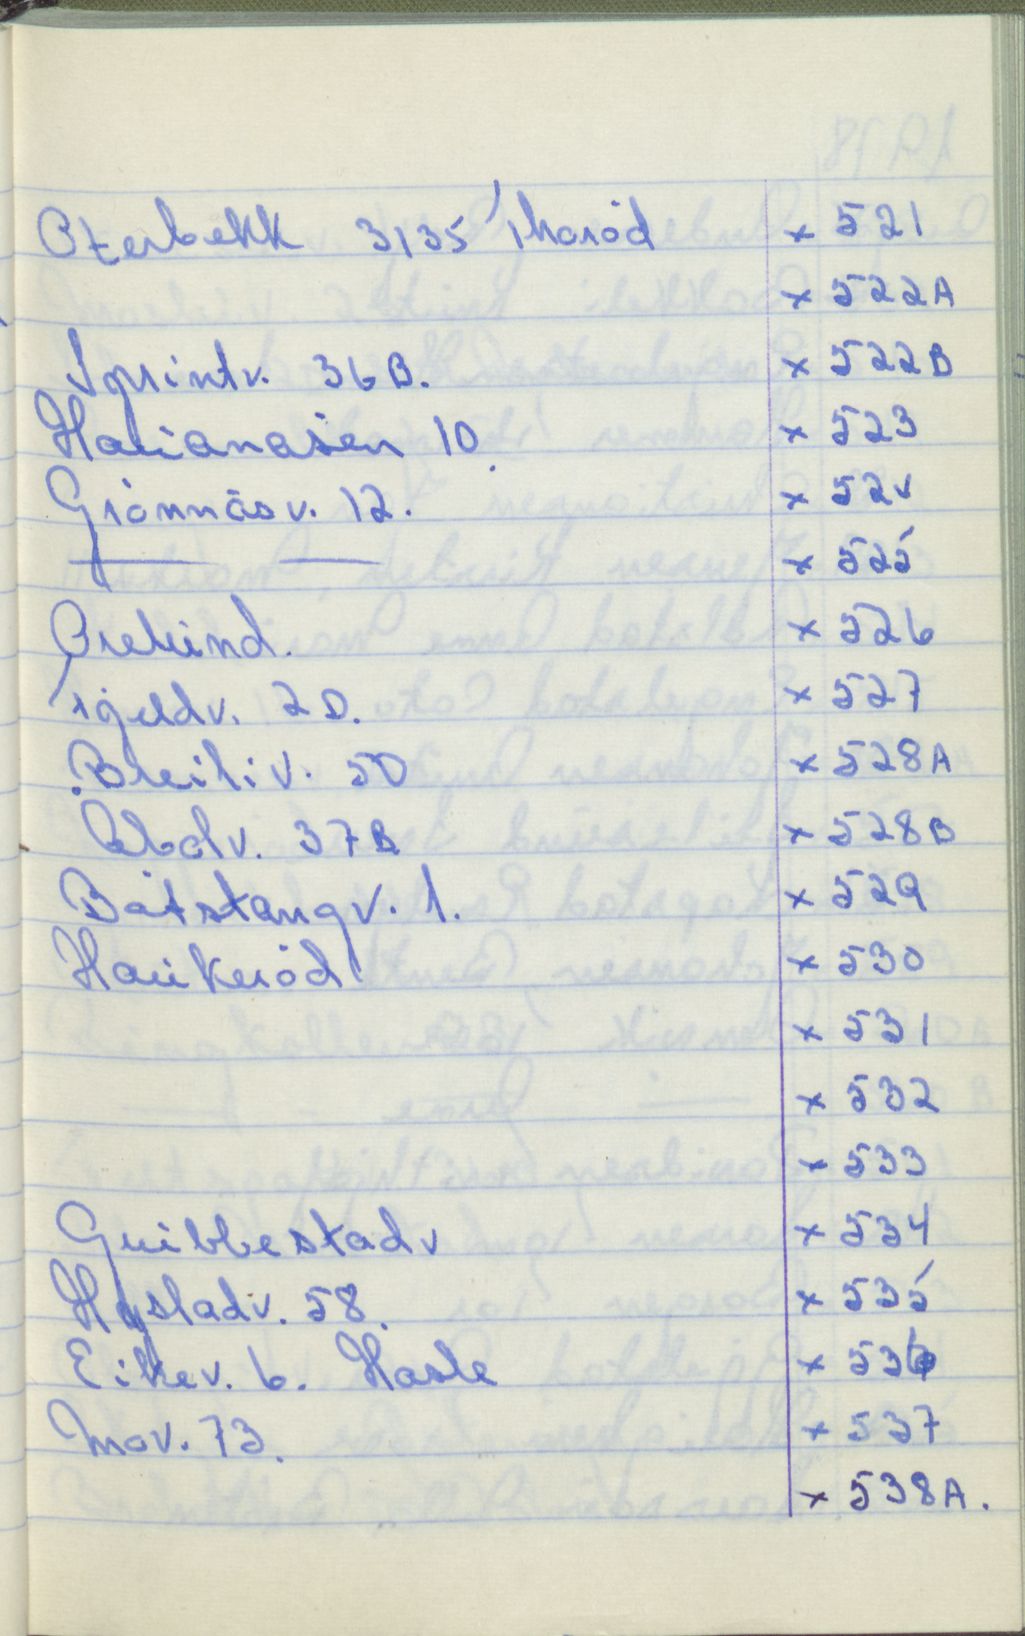 Oterbekk 3135 Thorød × 521
× 522A
Sprintv. 36B. × 522B
Harianasen 10. × 523
Grønnåsv. 12. × 524
— — × 525
Orelund. × 526
× 527
Breiliv. 5D × 528A
37B × 528B
Båtstangv. 1. × 529
Haukerød × 530
× 531
× 532
× 533
Guibbestadv × 534
Høsladv. 58. × 535
Eikev. 6. Hasle × 536
Mov. 73. × 537
× 538A.